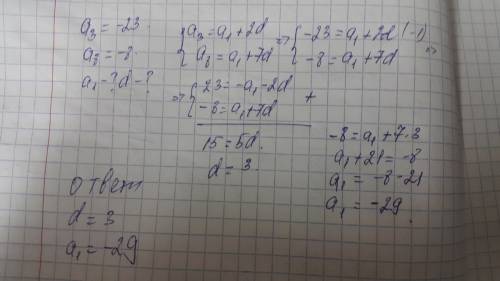 a₃ = -23.
a₈ = -8.
a₁ - ? d - ?
{ a₃ = a₁ + 2d
{ a₈ = a₁ + 7d
=> { -23 = a₁ + 2d | (-1)
{ -8 = a₁ + 7d =>
=> { 23 = -a₁ - 2d
{ -8 = a₁ + 7d +
15 = 5d.
d = 3.
-8 = a₁ + 7·3
a₁ + 21 = -8
a₁ = -8 - 21
a₁ = -29.
ответ
d = 3
a₁ = -29